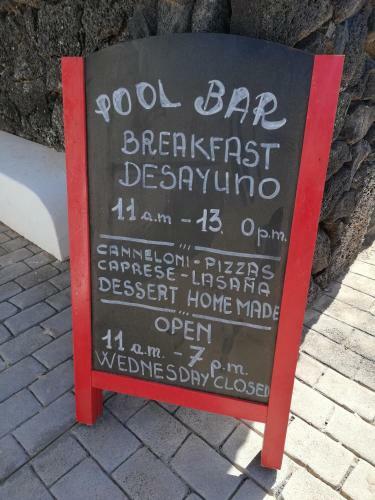 POOL BAR
BREAKFAST
DESAYUNO
11 a.m - 13 0p.m.
CANNELONI - PIZZAS
CAPRESE - LASAÑA
DESSERT HOMEMADE
OPEN
11 a.m. - 7 p.m.
WEDNESDAY CLOSED